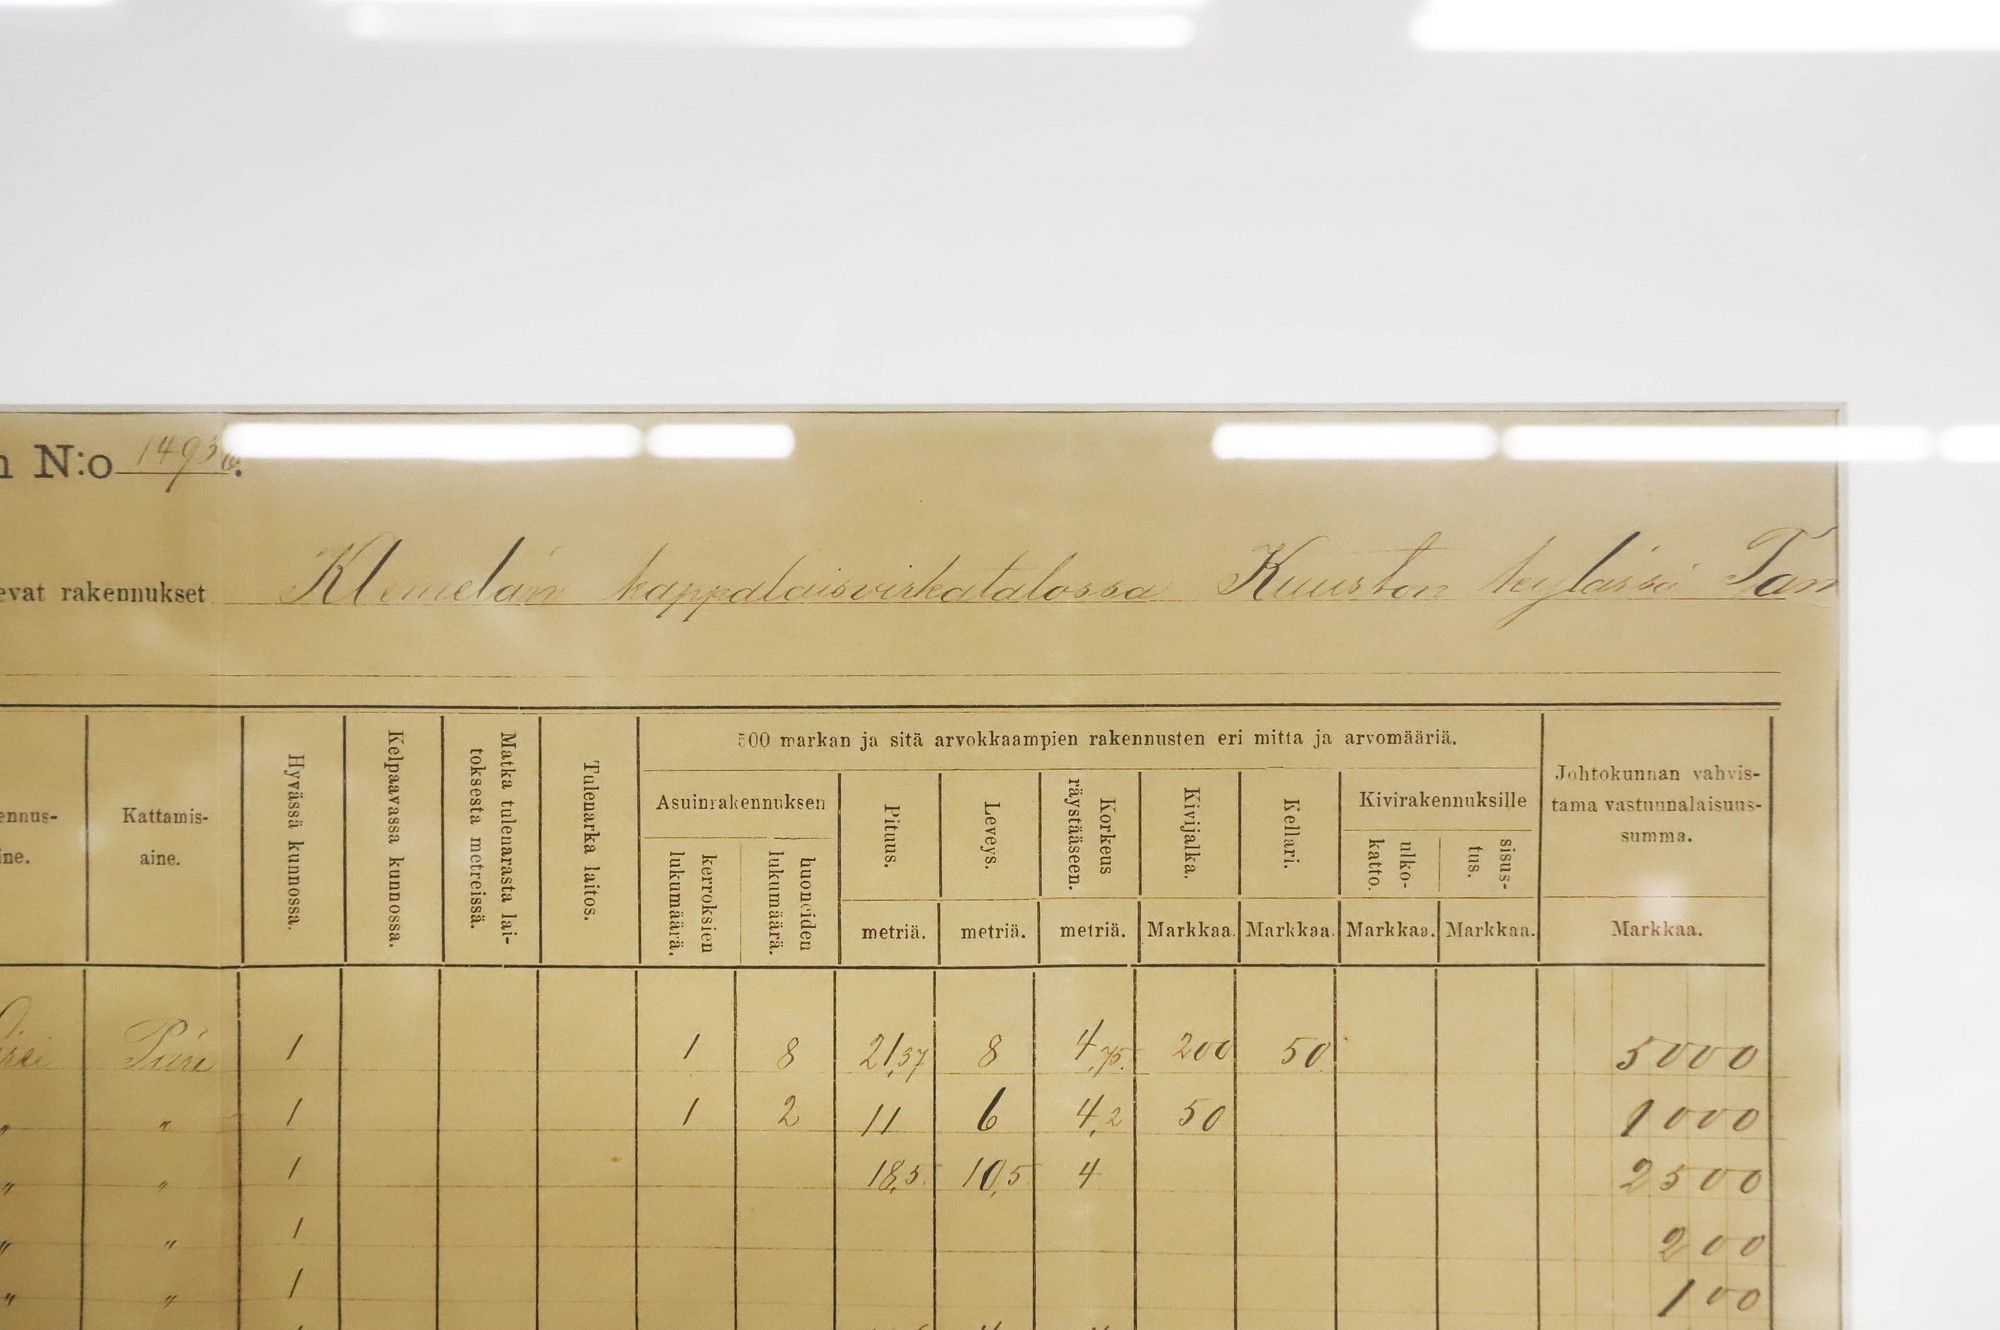 N:o 1493
evat rakennukset Klemelän kappalaisvirkatalossa Kuuston kylässä Tam
500 markan ja sitä arvokkaampien rakennusten eri mitta ja arvomääriä.
ennus-
ine.
Kattamis-
aine.
Hyvässä kunnossa.
Kelpaavassa kunnossa.
Matka tulenarasta lai-
toksesta metreissä.
Tulenarka laitos.
Asuinrakennuksen
kerroksien
lukumäärä.
huoneiden
lukumäärä.
Pituus.
metriä.
Leveys.
metriä.
Korkeus
räystääseen.
metriä.
Kivijalka.
Markkaa.
Kellari.
Markkaa.
Kivirakennuksille
ulko-
kato.
Markkaa.
sisus-
tus.
Markkaa.
Johtokunnan vahvis-
tama vastuunalaisuus-
summa.
Markkaa.
Päre 1 1 8 21,37 8 4,75. 200 50 5000
" " 1 1 2 11 6 4,2 50 1000
" " 1 18,5 10,5 4 2500
" " 1 200
" " 1 100